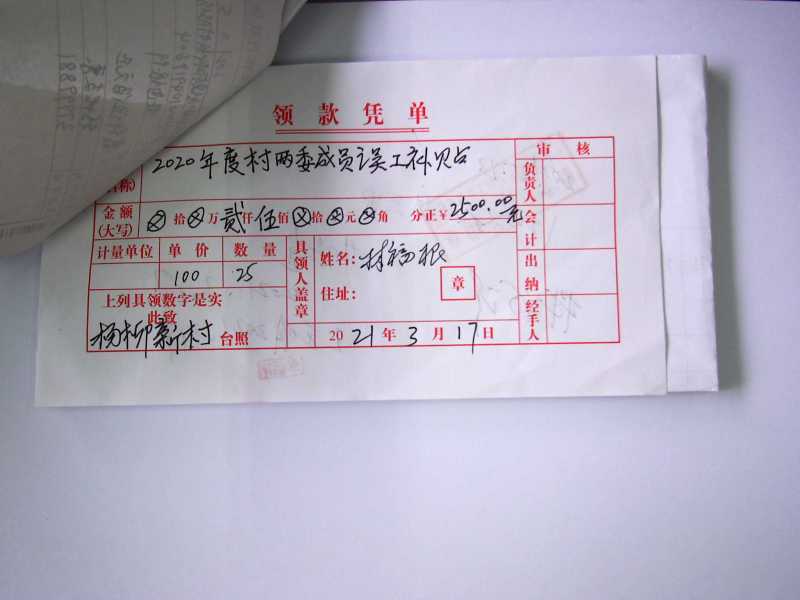 领款凭单
称)
2020年度村两委成员误工补贴
审核
负责人
金额
(大写)
⊗拾⊗万贰仟伍佰⊗拾⊗元⊗角 分正¥2500.00元
会计
计量单位 单价 数量
100 25
具领人盖章
姓名:林福根
住址:
章
出纳
上列具领数字是实
此致
杨柳新村台照
2021年3月17日
经手人